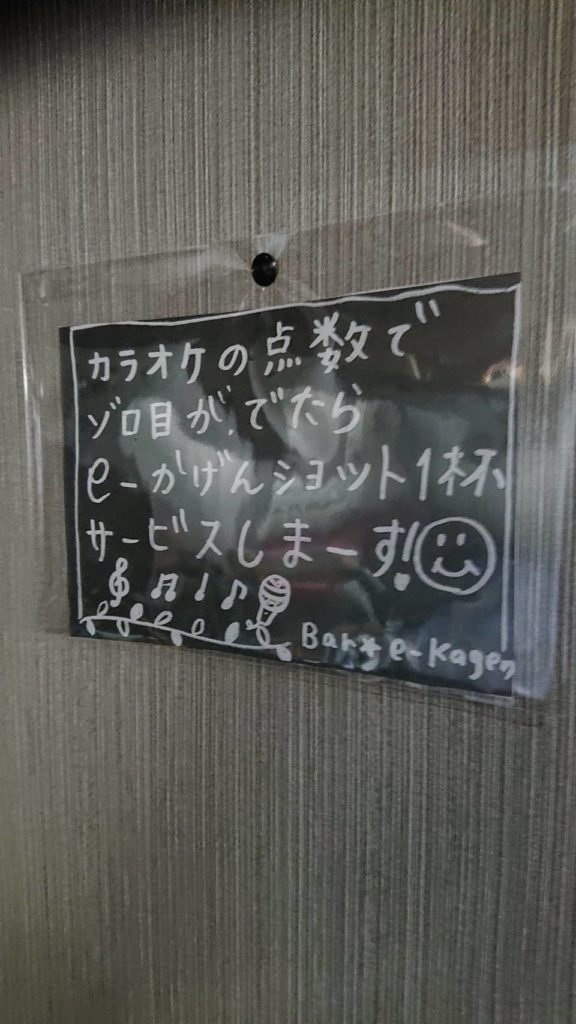 カラオケの点数で
ゾロ目がでたら
e-かげんショット1杯
サービスしまーす!
Bar*e-Kagen